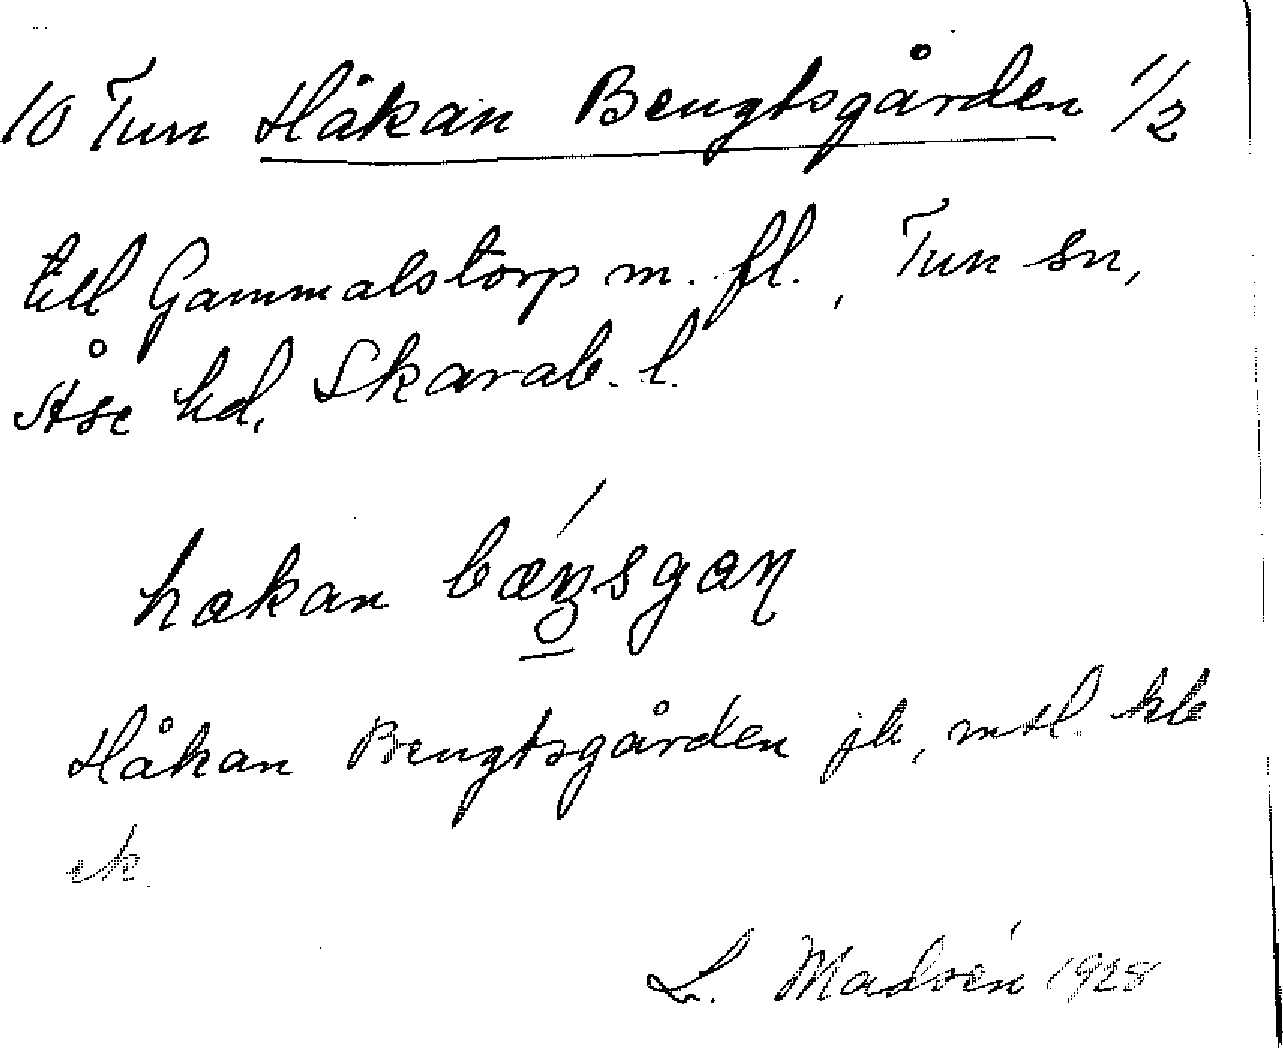 10 Tun Håkan Bengtsgården 1/2
till Gammalstorp m. fl., Tun sn,
Åse hd, Skarab. l.
hakan bæŋsgaɳ
Håkan Bengtsgården jb, mtl. kb
ek
L. Madsén 1928